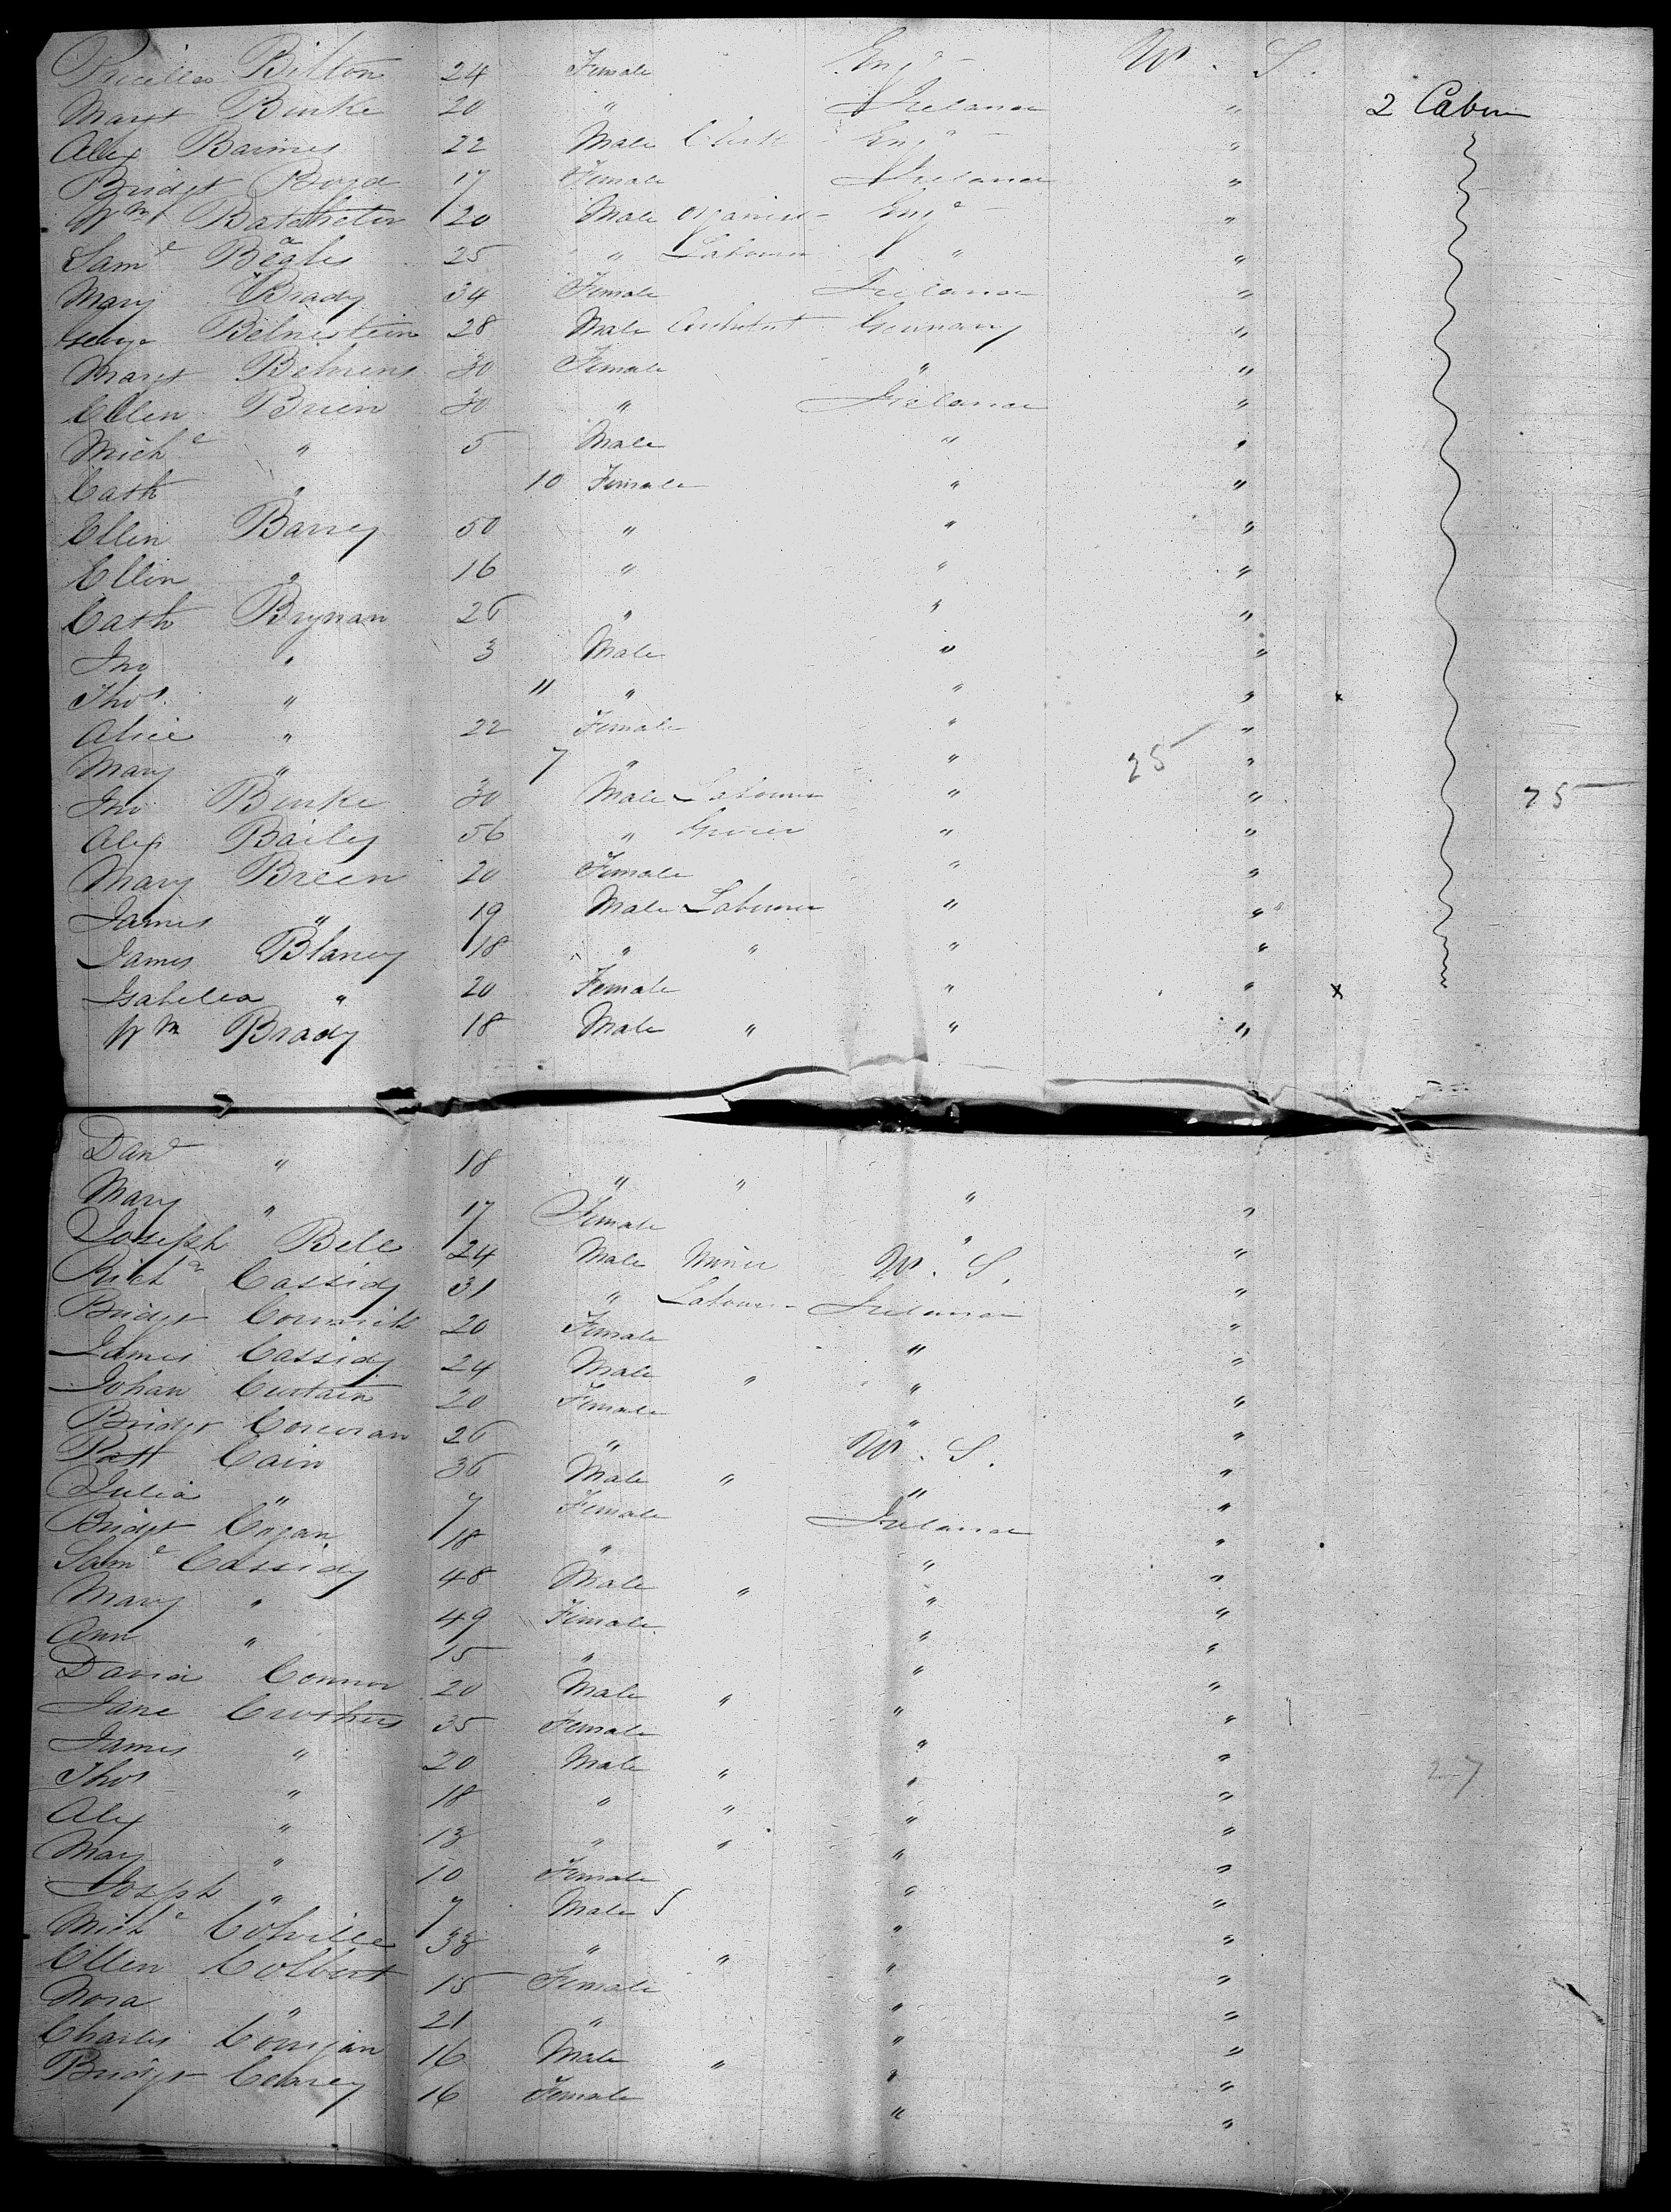 Bilton 24 Female Eng^d U. S.
Marg^t Burke 20 " Ireland " 2 Cabin
Alex Baines 22 Male Clerk Eng^d "
Bridget Boyd 17 Female Ireland "
W^m Batchelor 20 Male Organist Eng^d "
Sam^l Beales 25 " Labourer " "
Mary Brady 34 Female Ireland "
George 28 Male Architect Germany "
Marg^t Behrens 30 Female " "
Ellen Brien 30 " Ireland "
Mich^l " 5 Male " "
Cath " 10 Female " "
Ellen Barry 50 " " "
Ellen " 16 " " "
Cath Brynan 26 " " "
Jno " 3 Male " "
Thos " 11 " " " x
Alice " 22 Female " "
Mary " 7 " " 25 "
Jno Burke 30 Male Labourer " " 25
Alex Bailey 56 " Grocer " "
Mary Breen 20 Female " "
James " 19 Male Labourer " "
James Blaney 18 " " " "
Isabella " 20 Female " " x
W^m Brady 18 Male " " "
Dan^l " 18 " " " "
Mary " 17 Female " "
Joseph Bell 24 Male Miner U. S. "
Rich^d Cassidy 31 " Labourer Ireland "
Bridget Cormick 20 Female " "
James Cassidy 24 Male " " "
Johan Curtain 20 Female " "
Bridget Corcoran 26 " U. S. "
Patt Cain 36 Male " " "
Julia " 7 Female Ireland "
Bridget Cogan 18 " " "
Sam^l Cassidy 48 Male " " "
Mary " 49 Female " "
Ann " 15 " " "
David Connor 20 Male " " "
Jane Crothers 35 Female " "
James " 20 Male " " " 27
Thos " 18 " " " "
Alex " 13 " " " "
Mary " 10 Female " "
Joseph " 7 Male " "
Mich^l Colville 38 " " " "
Ellen Colbert 15 Female " "
Nora " 21 " " "
Charles Corrigan 16 Male " " "
Bridget Clarey 16 Female " "